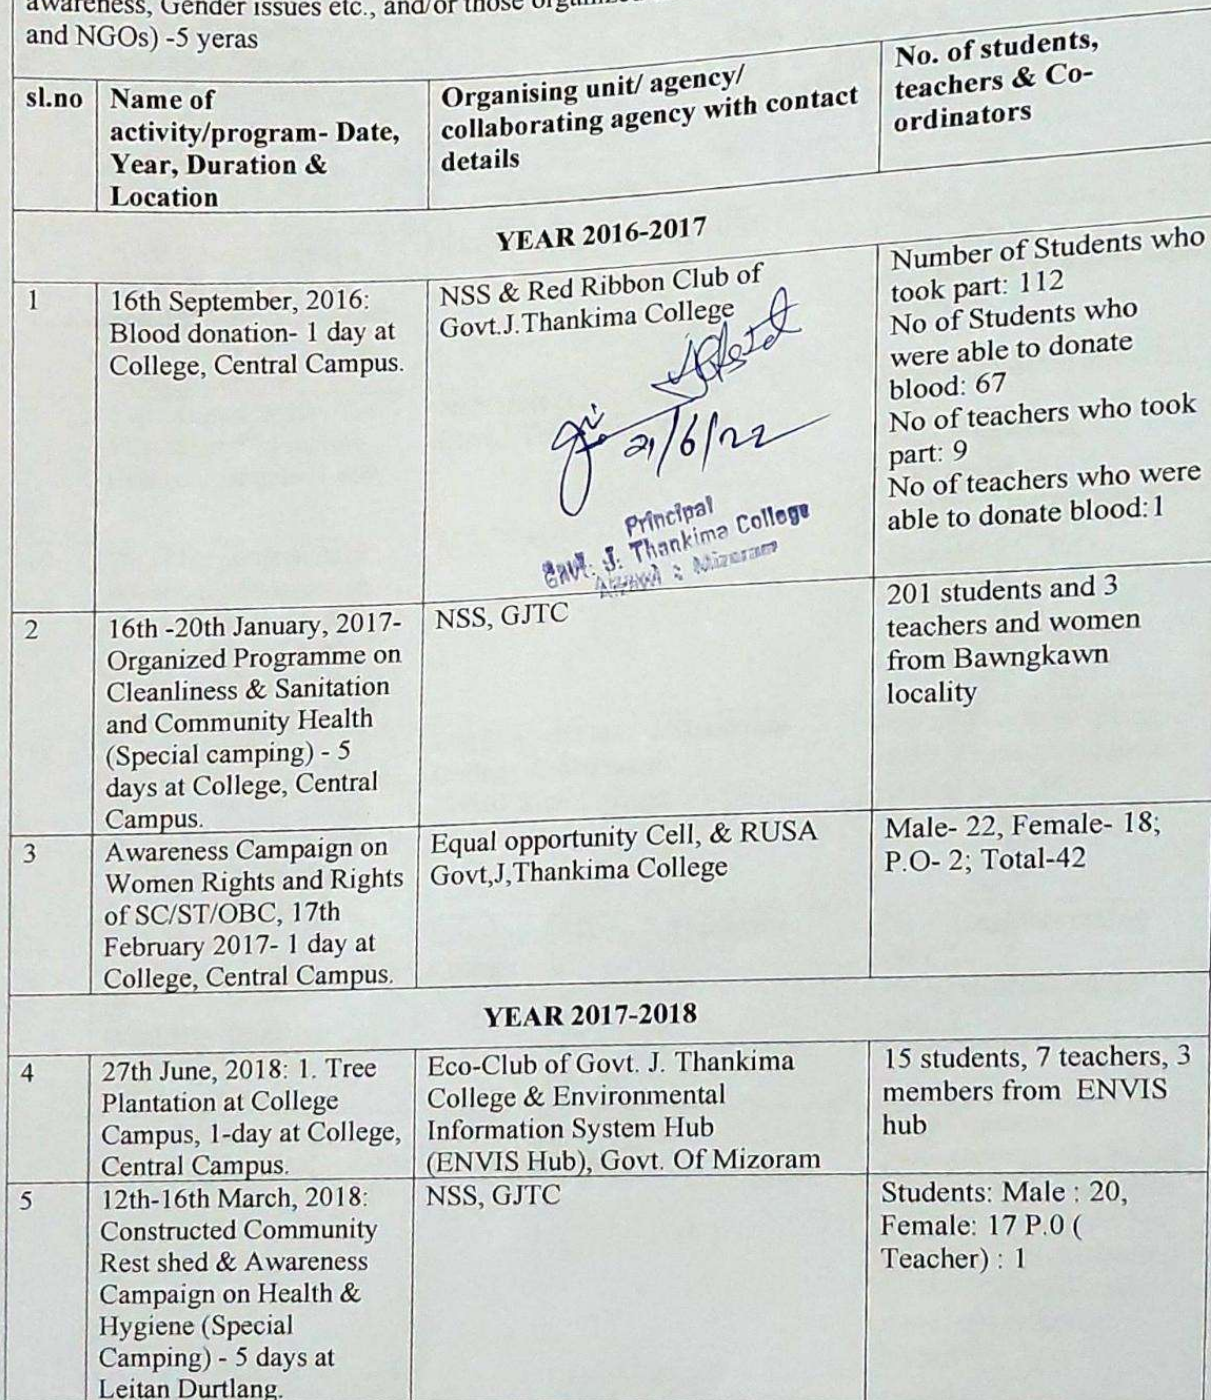 awareness, Gender issues etc., and/or those
and NGOs) -5 yeras
sl.no
Name of
activity/program- Date,
Year, Duration &
Location
Organising unit/ agency/
collaborating agency with contact
details
No. of students,
teachers & Co-
ordinators
YEAR 2016-2017
1
16th September, 2016:
Blood donation- 1 day at
College, Central Campus.
NSS & Red Ribbon Club of
Govt.J.Thankima College
21/6/22
Principal
Govt. J. Thankima College
Aizawl : Mizoram
Number of Students who
took part: 112
No of Students who
were able to donate
blood: 67
No of teachers who took
part: 9
No of teachers who were
able to donate blood:1
2
16th -20th January, 2017-
Organized Programme on
Cleanliness & Sanitation
and Community Health
(Special camping) - 5
days at College, Central
Campus.
NSS, GJTC
201 students and 3
teachers and women
from Bawngkawn
locality
3
Awareness Campaign on
Women Rights and Rights
of SC/ST/OBC, 17th
February 2017- 1 day at
College, Central Campus.
Equal opportunity Cell, & RUSA
Govt,J,Thankima College
Male- 22, Female- 18;
P.O- 2; Total-42
YEAR 2017-2018
4
27th June, 2018: 1. Tree
Plantation at College
Campus, 1-day at College,
Central Campus.
Eco-Club of Govt. J. Thankima
College & Environmental
Information System Hub
(ENVIS Hub), Govt. Of Mizoram
15 students, 7 teachers, 3
members from ENVIS
hub
5
12th-16th March, 2018:
Constructed Community
Rest shed & Awareness
Campaign on Health &
Hygiene (Special
Camping) - 5 days at
Leitan Durtlang.
NSS, GJTC
Students: Male : 20,
Female: 17 P.0 (
Teacher) : 1